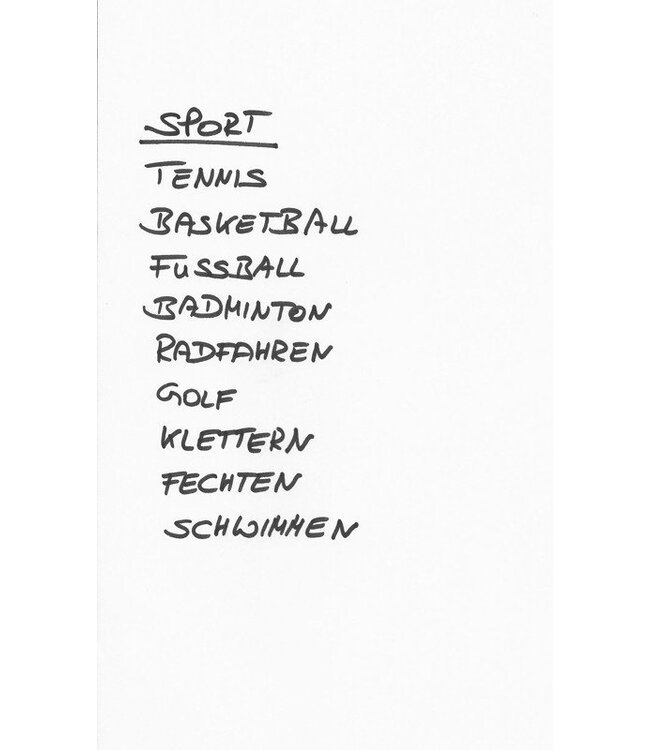 SPORT
TENNIS
BASKETBALL
FUSSBALL
BADMINTON
RADFAHREN
GOLF
KLETTERN
FECHTEN
SCHWIMMEN